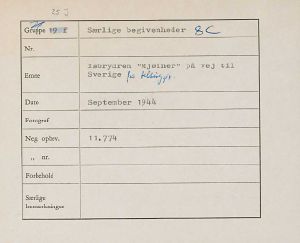 25 J
Gruppe Særlige begivenheder 8C
Nr.
Emne Isbryderen "Mjølner" på vej til
Sverige
Dato September 1944
Fotograf
Neg. opbev. 11.774
„ nr.
Forbehold
Særlige
bemærkninger